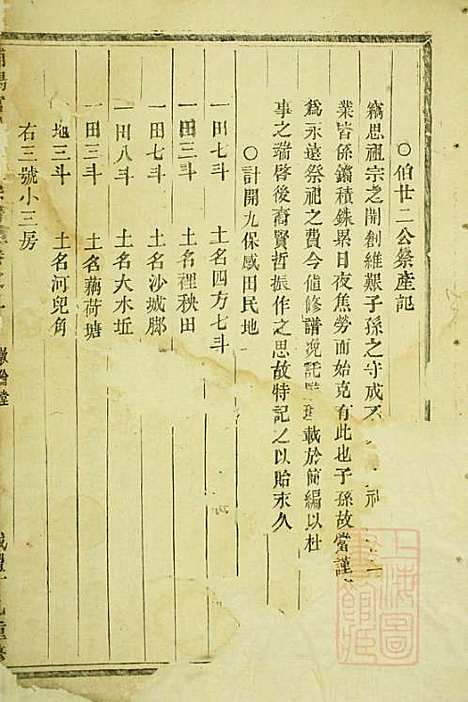 ○伯廿二公祭產記
竊思祖宗之開創維艱子孫之守成不
業皆係鏑積銖累日夜焦勞而始克有此也子孫故當謹
為永遠祭祀之費今値修譜挽託 載於簡編以杜
事之端啓後裔賢哲振作之思故特記之以貽末久
○計開九保感田民地
一田七斗 土名四方七斗
一田三斗 土名裡秧田
一田七斗 土名沙城脚
一田八斗 土名大水坵
一田三斗 土名藕荷塘
一地三斗 土名河兒角
右三號小三房
上海圖書館藏